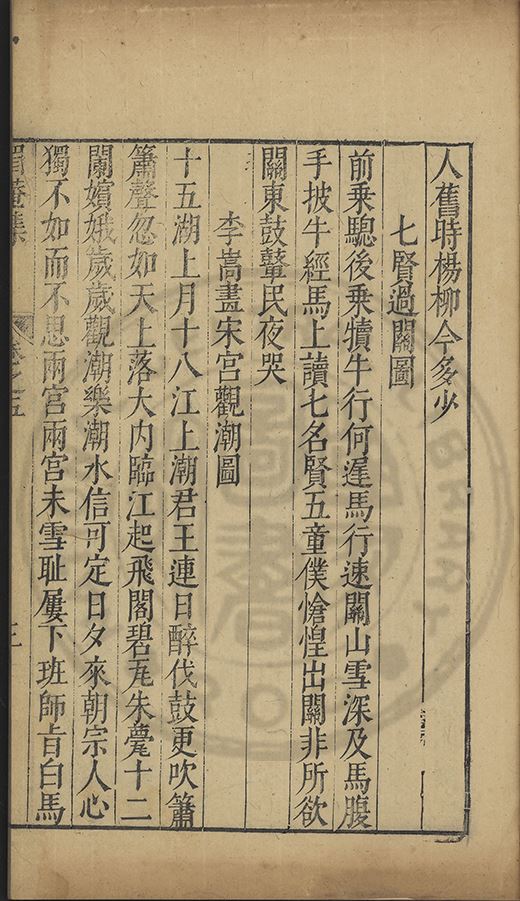 人舊時楊柳今多少
七賢過關圖
前乘驄後乘犢牛行何遲馬行速關山雪深及馬腹
手披牛經馬上讀七名賢五童僕愴惶出關非所欲
關東鼓鼙民夜哭
李嵩畫宋宮觀潮圖
十五湖上月十八江上潮君王連日醉伐鼓更吹簫
簫聲忽如天上落大內臨江起飛閣碧瓦朱甍十二
闌嬪娥歲歲觀潮樂潮水信可定日夕來朝宗人心
獨不如而不思兩宮兩宮未雪耻屢下班師旨白馬
眉菴集
卷之五
三